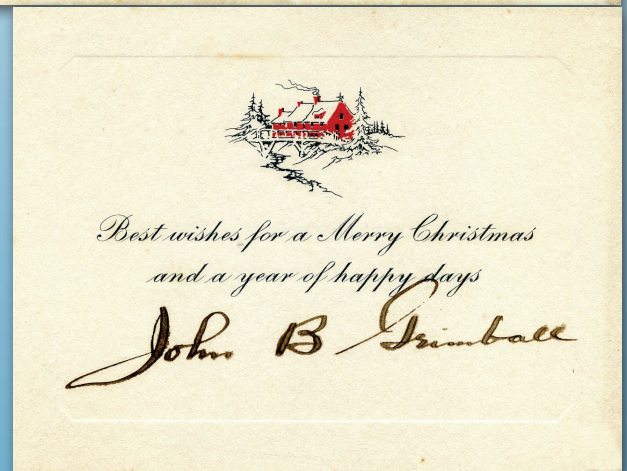 Best wishes for a Merry Christmas
and a year of happy days
John B Grimball